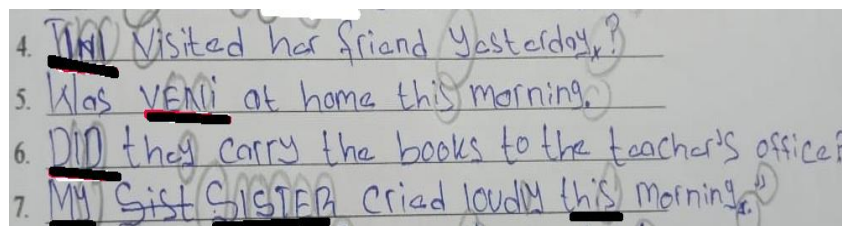 4. TINI Visited her friend yesterday,?
5. Was VENi at home this morning.
6. DID they carry the books to the teacher's office?
7. MY Sist SISTER cried loudly this morning.